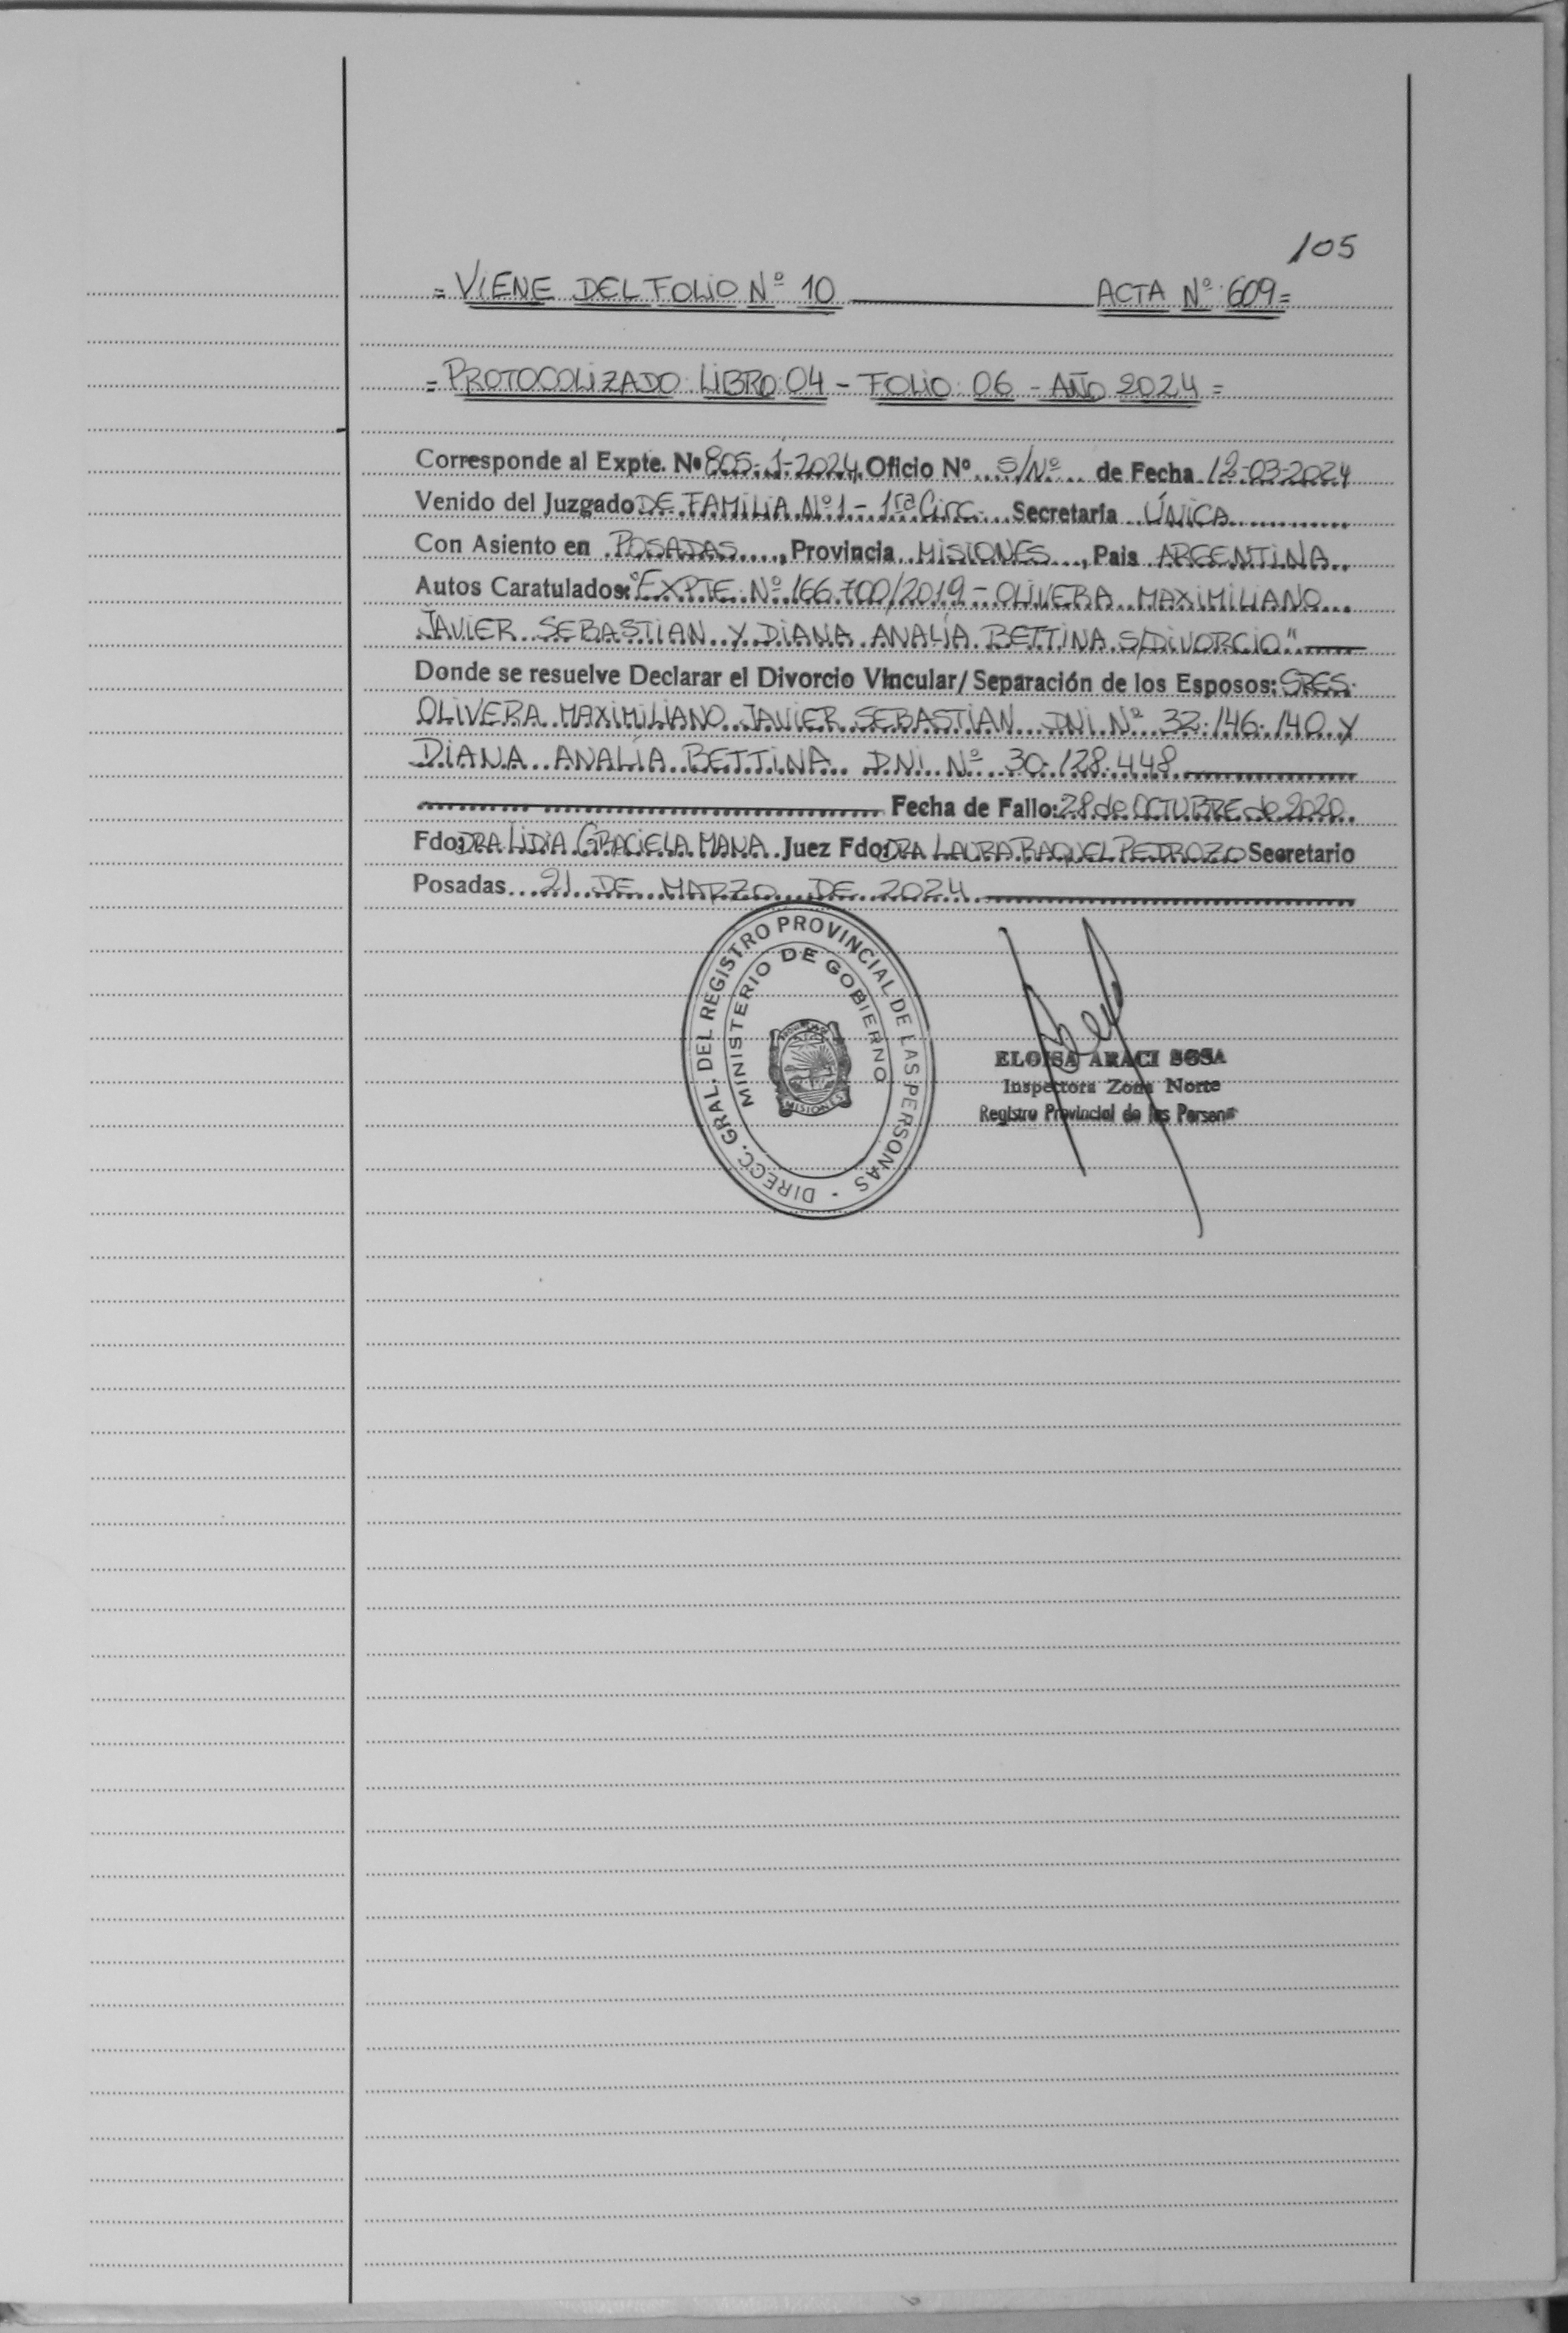 105
= VIENE DEL FOLIO Nº 10 ACTA Nº 609=
= PROTOCOLIZADO: LIBRO: 04 - FOLIO: 06 - AÑO 2024 =
Corresponde al Expte. Nº 805-1-2024. Oficio Nº S/Nº de Fecha 12-03-2024
Venido del Juzgado DE FAMILIA Nº1 - 1ra Circ. Secretaria ÚNICA
Con Asiento en POSADAS, Provincia MISIONES, Pais ARGENTINA
Autos Caratulados: "EXPTE. Nº 166.700/2019 - OLIVERA MAXIMILIANO
JAVIER SEBASTIAN Y DIANA ANALÍA BETTINA S/DIVORCIO"
Donde se resuelve Declarar el Divorcio Vincular/ Separación de los Esposos: SRES.
OLIVERA MAXIMILIANO JAVIER SEBASTIAN DNI Nº 32.146.140 Y
DIANA ANALÍA BETTINA D.N.I. Nº 30.128.448
Fecha de Fallo: 28 de OCTUBRE de 2020.
Fdo: DRA LIDIA GRACIELA MANA Juez Fdo: DRA LAURA RAQUEL PEDROZO Secretario
Posadas 21 DE MARZO DE 2024
DIRECC. GRAL. DEL REGISTRO PROVINCIAL DE LAS PERSONAS -
MINISTERIO DE GOBIERNO
MISIONES
ELOISA ARACI SOSA
Inspectora Zona Norte
Registro Provincial de las Personas